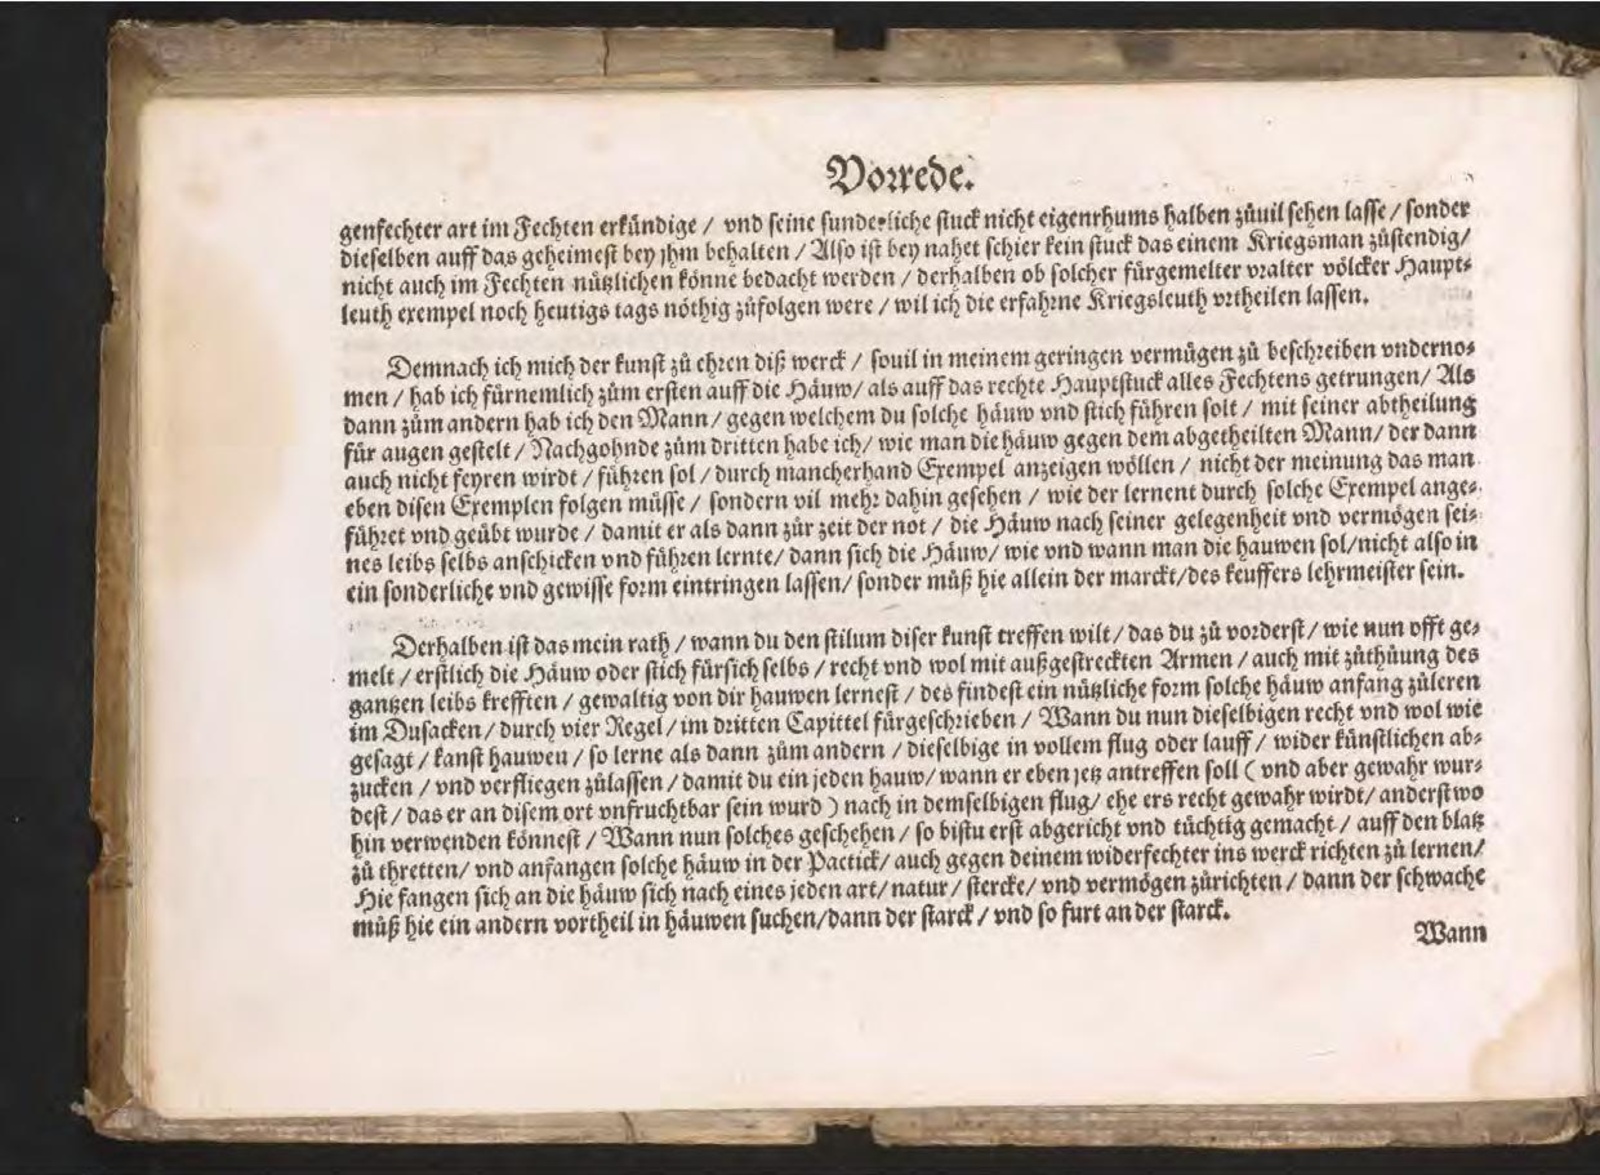 Vorrede.
genfechter art im Fechten erkündige / vnd seine sunderliche stuck nicht eigenrhums halben zůuil sehen lasse / sonder
dieselben auff das geheimest bey jhm behalten / Also ist bey nahet schier kein stuck das einem Kriegsman zůstendig /
nicht auch im Fechten nützlichen könne bedacht werden / derhalben ob solcher fürgemelter vralter völcker Haupt-
leuth exempel noch heutigs tags nöthig zůfolgen were / wil ich die erfahrne Kriegsleuth vrtheilen lassen.
Demnach ich mich der kunst zů ehren diß werck / souil in meinem geringen vermügen zů beschreiben vnderno-
men / hab ich fürnemlich zům ersten auff die Häuw / als auff das rechte Hauptstuck alles Fechtens getrungen / Als
dann zům andern hab ich den Mann / gegen welchem du solche häuw vnd stich führen solt / mit seiner abtheilung
für augen gestelt / Nachgohnde zům dritten habe ich / wie man die häuw gegen dem abgetheilten Mann / der dann
auch nicht feyren wirdt / führen sol / durch mancherhand Exempel anzeigen wöllen / nicht der meinung das man
eben disen Exemplen folgen müsse / sondern vil mehr dahin gesehen / wie der lernent durch solche Exempel ange-
führet vnd geübt wurde / damit er als dann zůr zeit der not / die Häuw nach seiner gelegenheit vnd vermögen sei-
nes leibs selbs anschicken vnd führen lernte / dann sich die Häuw / wie vnd wann man die hauwen sol / nicht also in
ein sonderliche vnd gewisse form eintringen lassen / sonder můß hie allein der marckt / des keuffers lehrmeister sein.
Derhalben ist das mein rath / wann du den stilum diser kunst treffen wilt / das du zů vorderst / wie nun offt ge-
melt / erstlich die Häuw oder stich fürsich selbs / recht vnd wol mit außgestreckten Armen / auch mit zůthůung des
gantzen leibs krefften / gewaltig von dir hauwen lernest / des findest ein nützliche form solche häuw anfang zůleren
im Dusacken / durch vier Regel / im dritten Capittel fürgeschrieben / Wann du nun dieselbigen recht vnd wol wie
gesagt / kanst hauwen / so lerne als dann zům andern / dieselbige in vollem flug oder lauff / wider künstlichen ab-
zucken / vnd verfliegen zůlassen / damit du ein jeden hauw / wann er eben jetz antreffen soll ( vnd aber gewahr wur-
dest / das er an disem ort vnfruchtbar sein wurd ) nach in demselbigen flug / ehe ers recht gewahr wirdt / anderstwo
hin verwenden könnest / Wann nun solches geschehen / so bistu erst abgericht vnd tüchtig gemacht / auff den blatz
zů thretten / vnd anfangen solche häuw in der Pactick / auch gegen deinem widerfechter ins werck richten zů lernen /
Hie fangen sich an die häuw sich nach eines jeden art / natur / stercke / vnd vermögen zůrichten / dann der schwache
můß hie ein andern vortheil in häuwen suchen / dann der starck / vnd so furt an der starck.
Wann